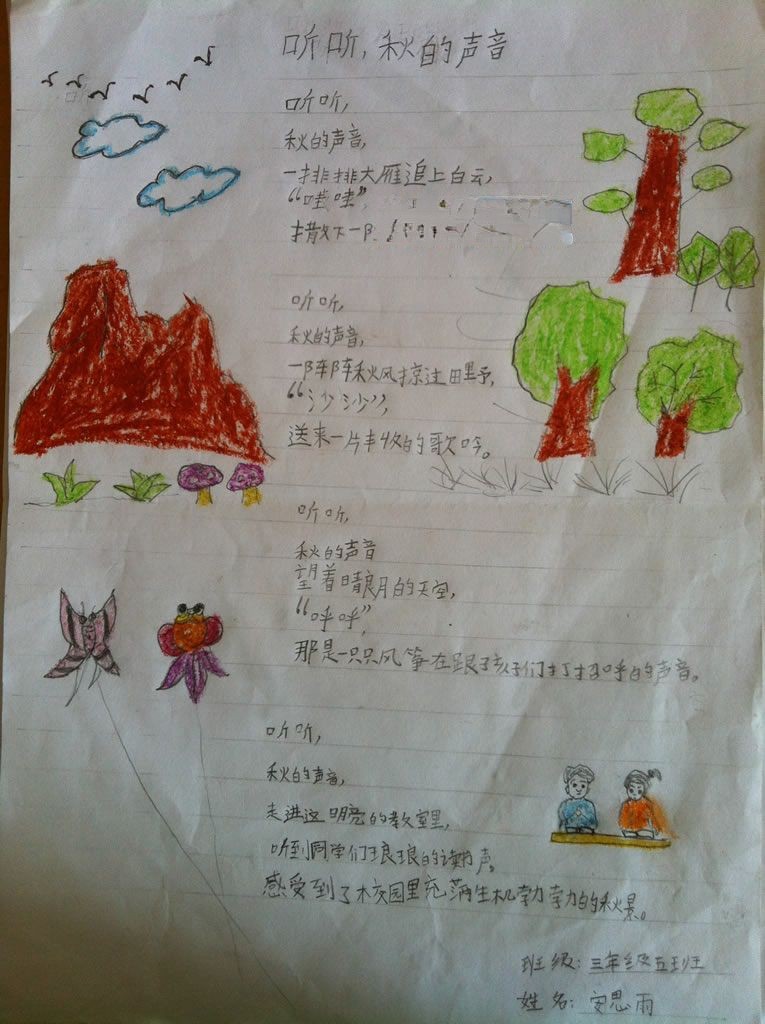 听听，秋的声音
听听，
秋的声音，
一排排大雁追上白云，
“哇哇”，
撒下一阵
听听，
秋的声音，
一阵阵秋风掠过田野，
“沙沙”，
送来一片丰收的歌吟。
听听，
秋的声音
望着晴朗的天空，
“呼呼”，
那是一只只风筝在跟孩子们打招呼的声音。
听听，
秋的声音，
走进这明亮的教室里，
听到同学们琅琅的读书声。
感受到了校园里充满生机勃勃的秋景。
班级：三年级五班
姓名：安思雨